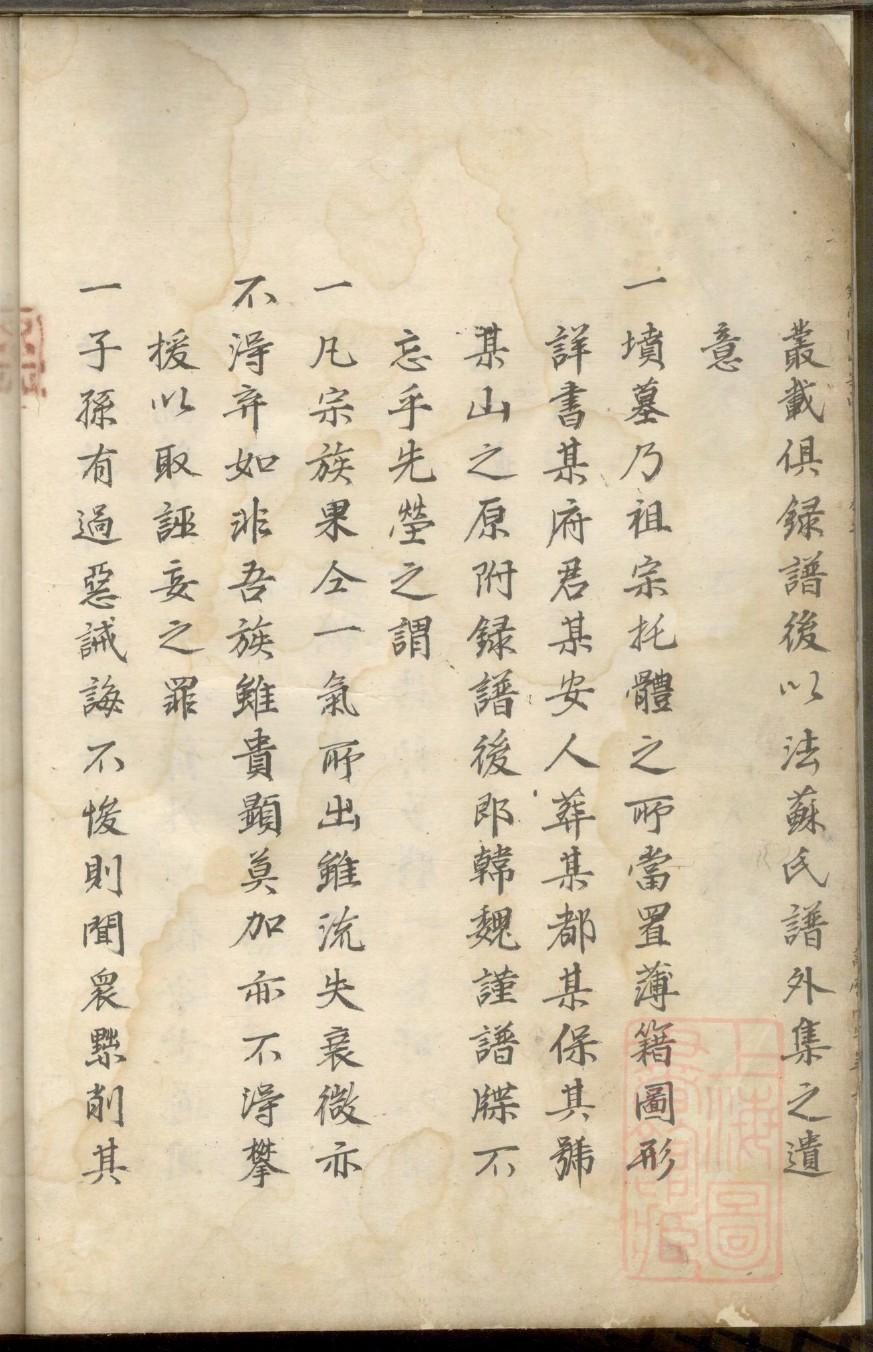 叢載俱録譜後以法蘇氏譜外集之遺
意
一墳墓乃祖宗托體之所當置薄籍圖形
詳書某府君某安人葬某都某保某號
某山之原附録譜後即韓魏謹譜牒不
忘乎先塋之謂
一凡宗族果仝一氣所出雖流失衰微亦
不得弃如非吾族雖貴顯莫加亦不得攀
援以取誣妄之罪
一子孫有過惡誡誨不悛則聞衆黜削其
上海圖
書館藏